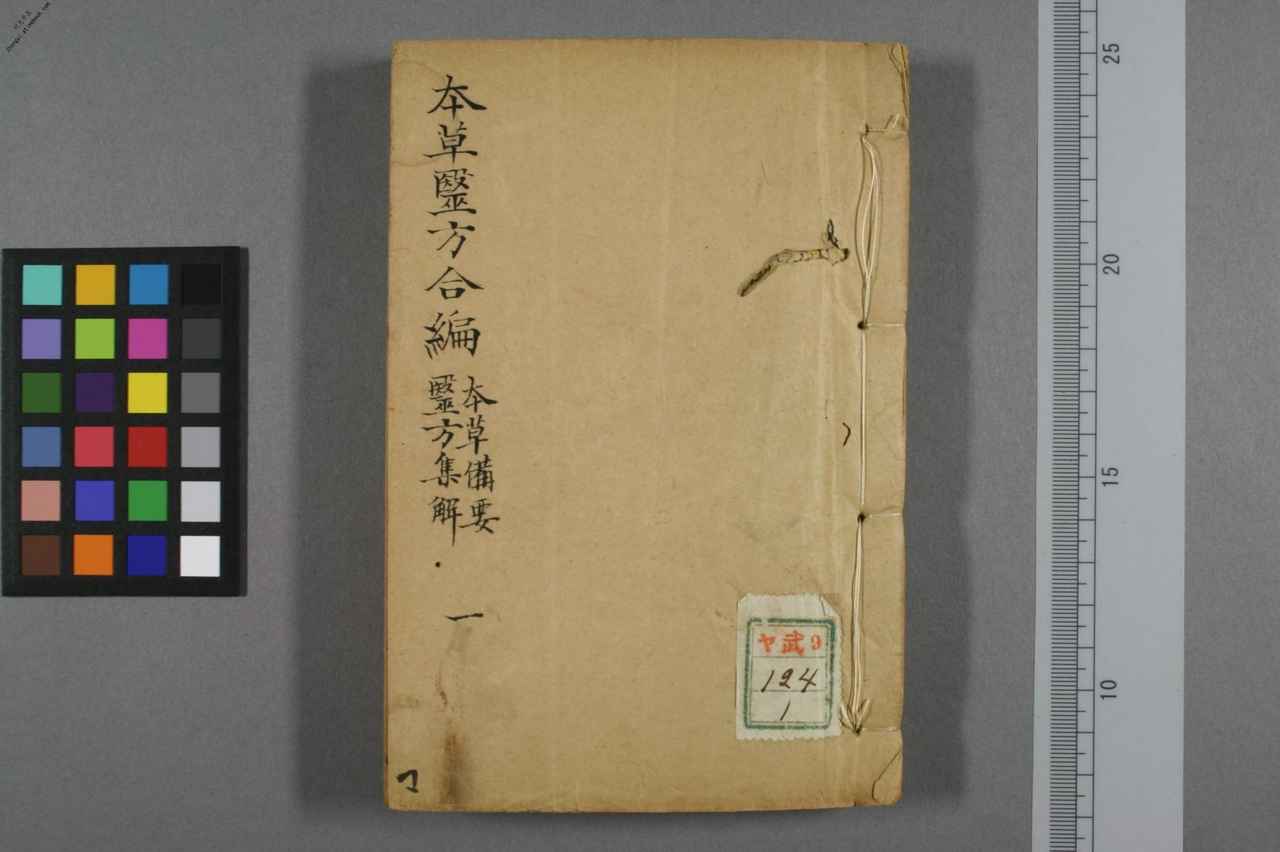 本草毉方合編
本草備要
毉方集解
一
マ
ヤ武9
124
1
25
20
15
10